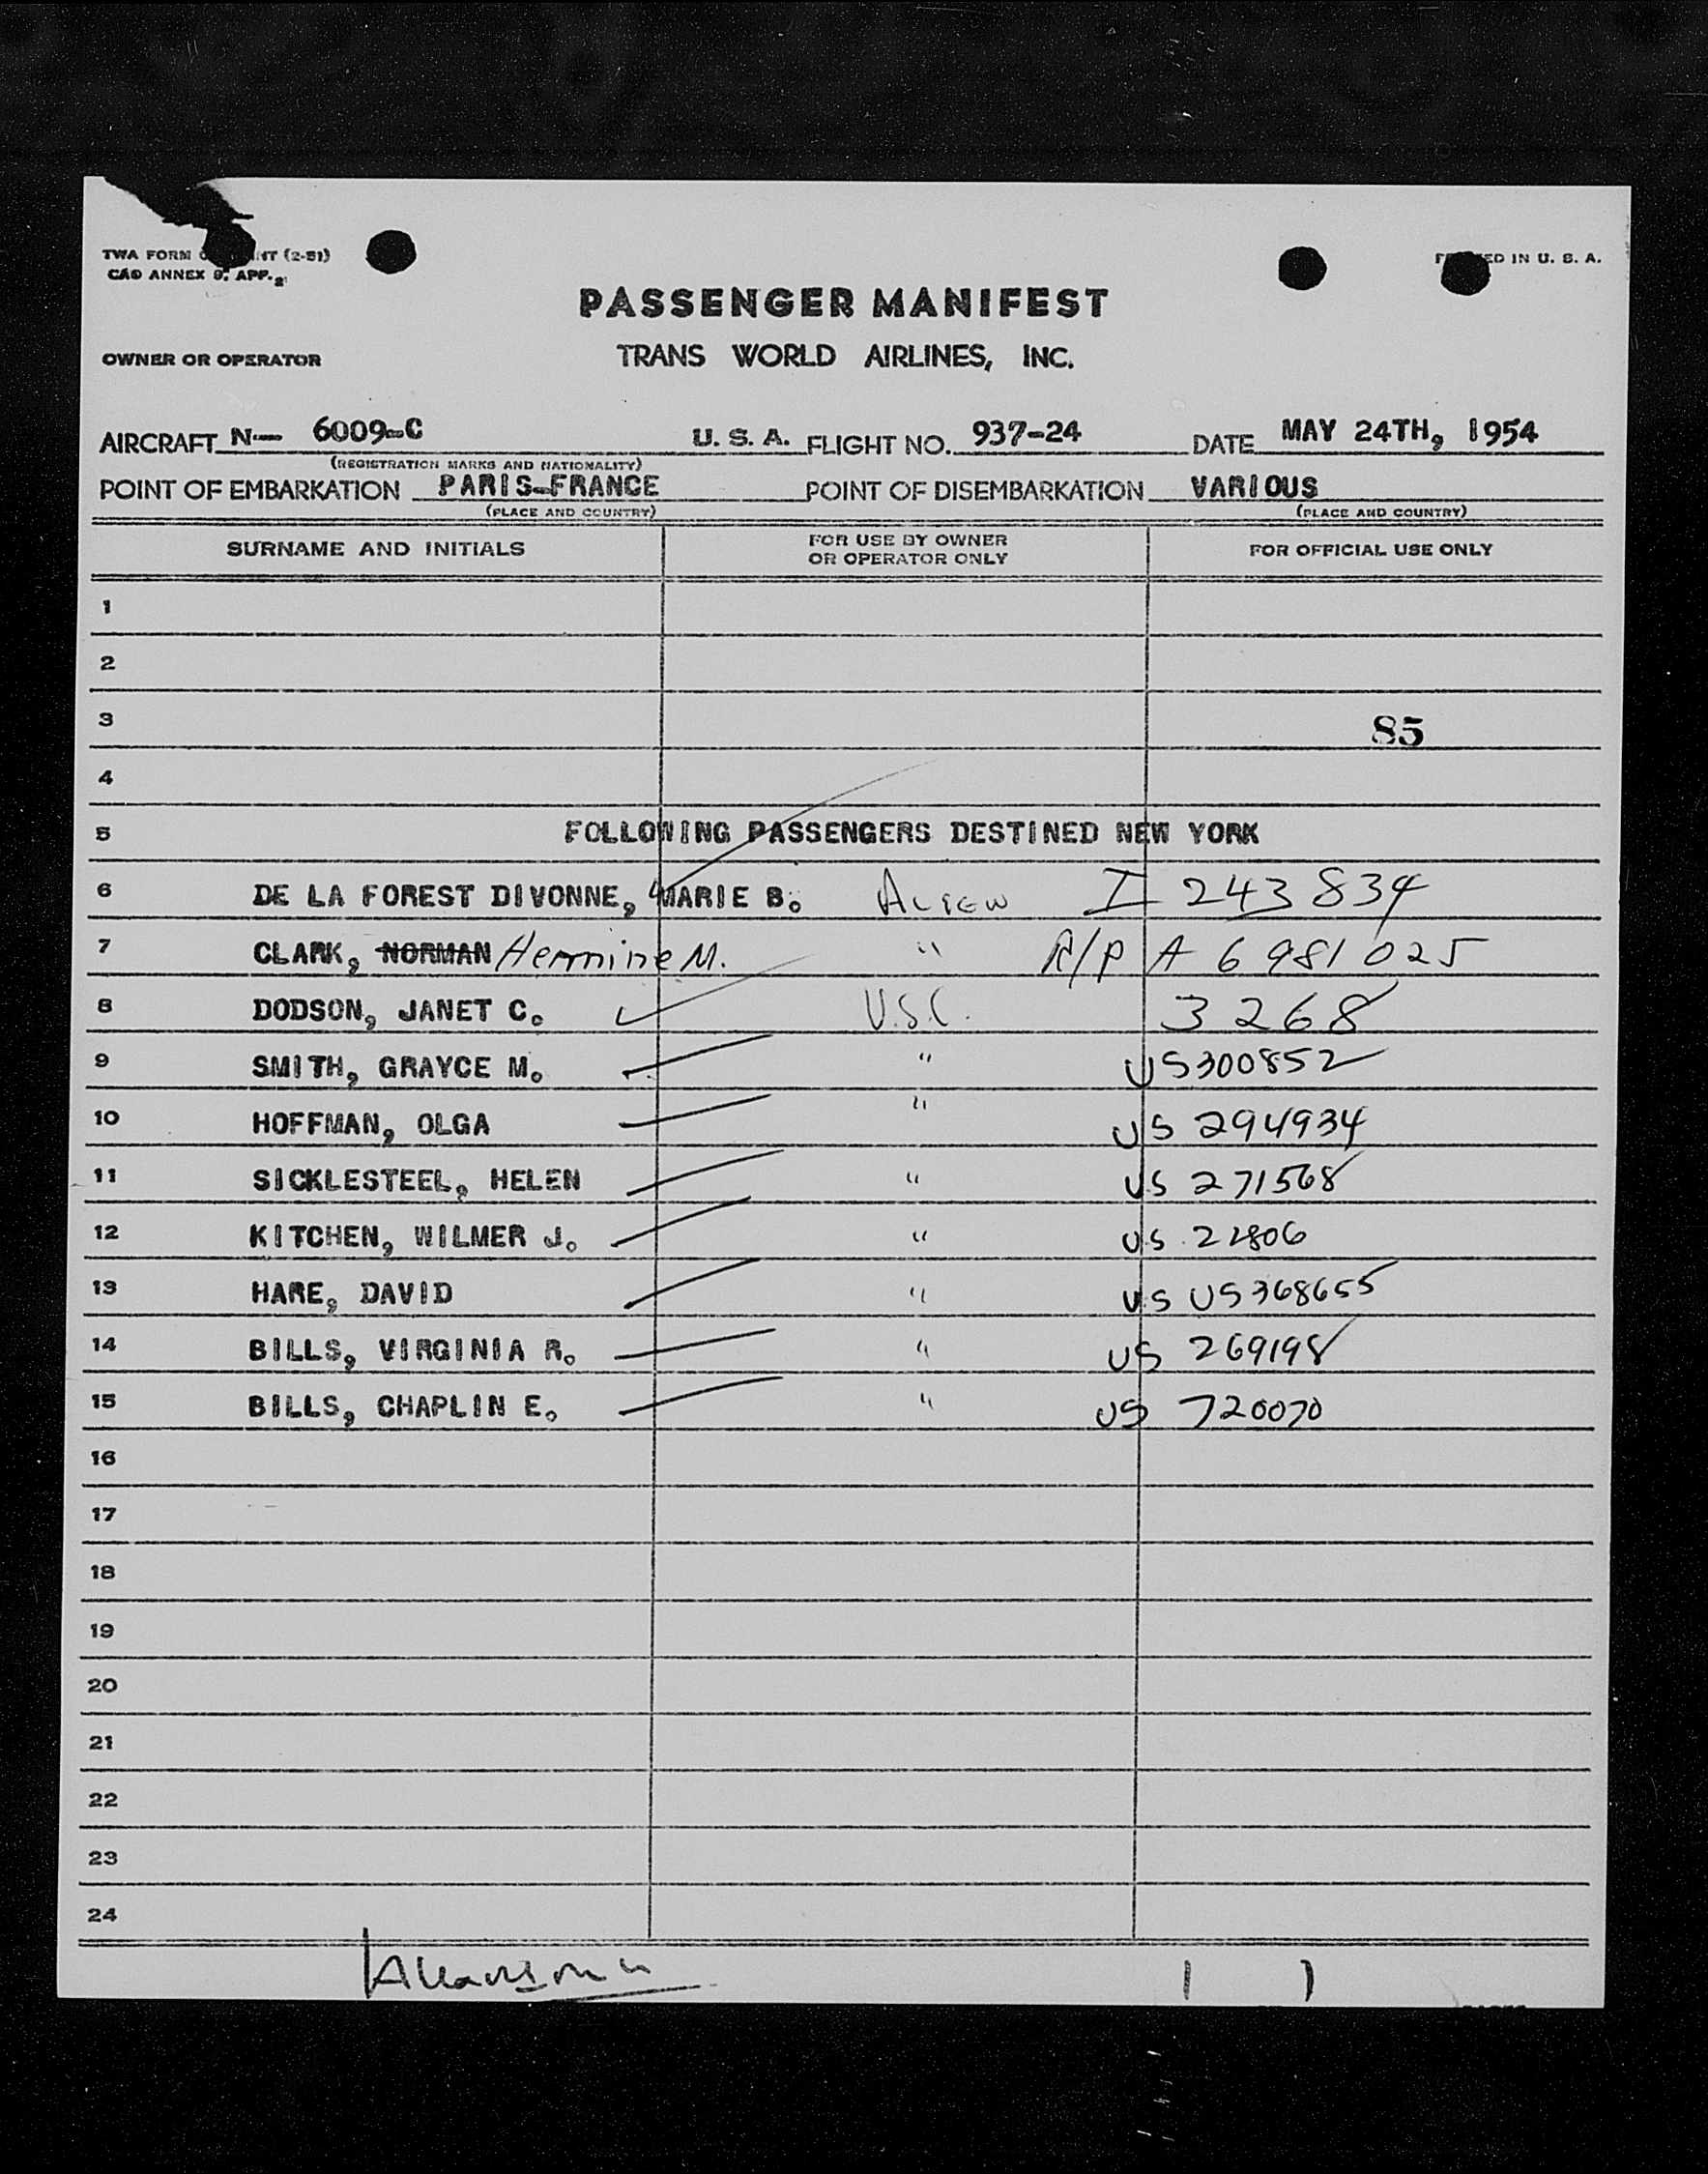 TWA FORM
CAO ANNEX 9, APP. 2
IT (2-51)
ED IN U. S. A.
PASSENGER MANIFEST
OWNER OR OPERATOR TRANS WORLD AIRLINES, INC.
AIRCRAFT N— 6009-C U. S. A. FLIGHT NO. 937-24 DATE MAY 24TH, 1954
(REGISTRATION MARKS AND NATIONALITY)
POINT OF EMBARKATION PARIS-FRANCE POINT OF DISEMBARKATION VARIOUS
(PLACE AND COUNTRY) (PLACE AND COUNTRY)
SURNAME AND INITIALS FOR USE BY OWNER OR OPERATOR ONLY FOR OFFICIAL USE ONLY
1
2
3 85
4
5 FOLLOWING PASSENGERS DESTINED NEW YORK
6 DE LA FOREST DIVONNE, MARIE B. ALIEN I 243834
7 CLARK, NORMAN Hermine M. " R/P A 6981025
8 DODSON, JANET C. U.S.C. 3268
9 SMITH, GRAYCE M. " US300852
10 HOFFMAN, OLGA " US 294934
11 SICKLESTEEL, HELEN " US 271568
12 KITCHEN, WILMER J. " US 22806
13 HARE, DAVID " US US368655
14 BILLS, VIRGINIA R. " US 269198
15 BILLS, CHAPLIN E. " US 720070
16
17
18
19
20
21
22
23
24